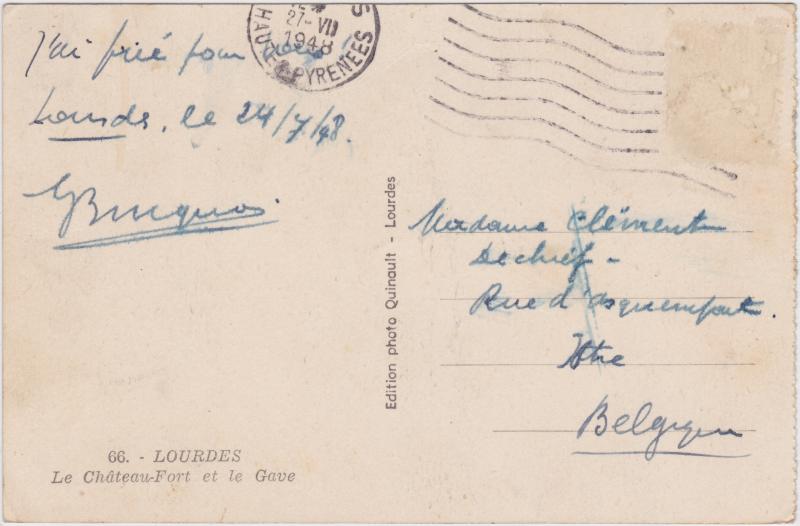 J'ai prié pour vous !
Lourdes, le 24/7/48.
27-VII
1948
HAUTES PYRENEES
Edition photo Quinault - Lourdes
Madame Clément
Dechief -
Rue d'Asquempont.
Ittre
Belgique
66. - LOURDES
Le Château-Fort et le Gave